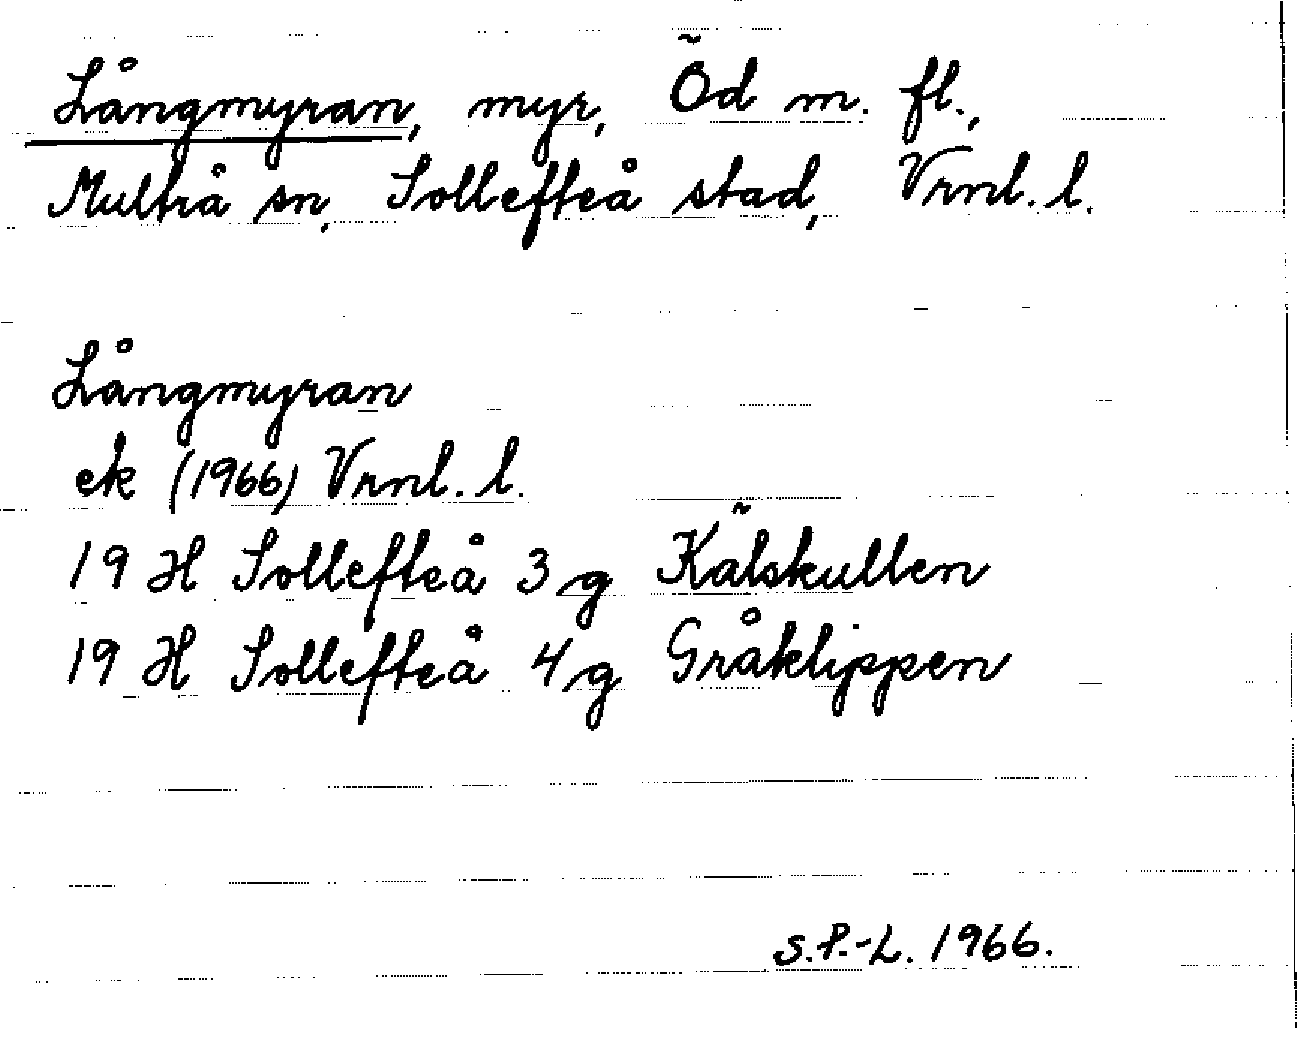 Långmyran, myr, Öd m. fl.,
Multrå sn, Sollefteå stad, Vrnl. l.
Långmyran
ek (1966) Vrnl. l.
19 H Sollefteå 3 g Kälskullen
19 H Sollefteå 4 g Gråklippen
S.P.-L. 1966.